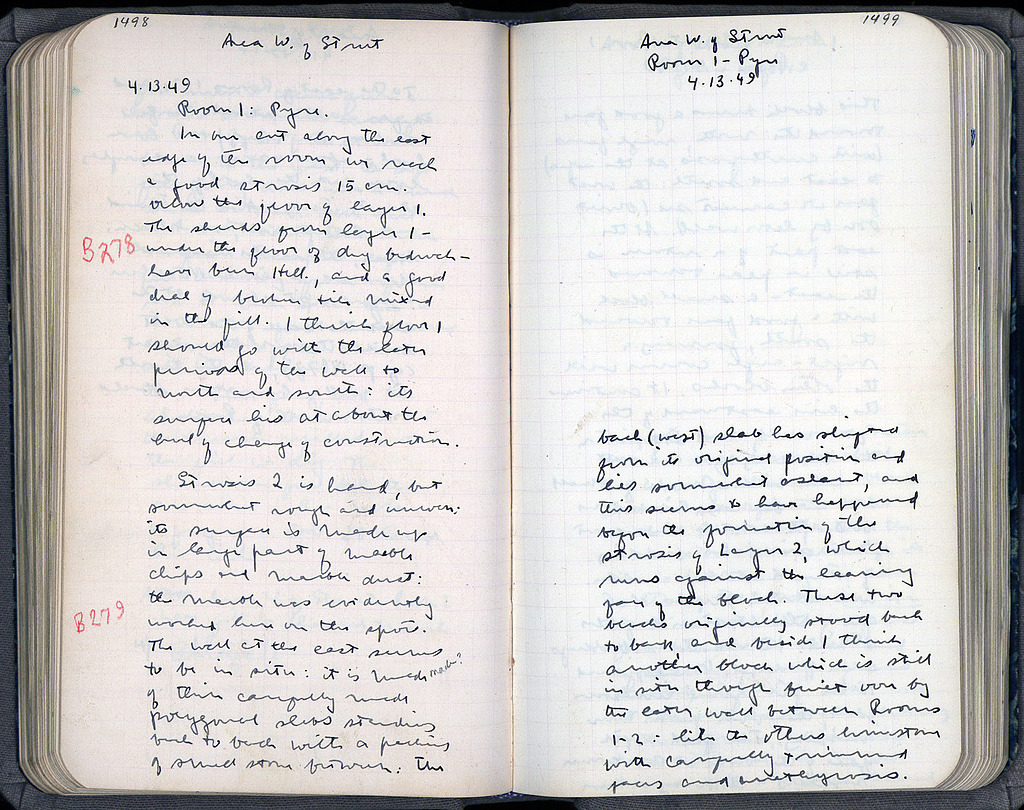 1498
Area W. of Strut
4.13.49
Room 1: Pyre.
In our cut along the east
edge of the room we reach
a good strosis 15 cm.
below the floor of layer 1.
The sherds from layer 1 –
B278
under the floor of dug bedrock –
have been Hell., and a good
deal of broken tile mixed
in the fill. I think floor 1
should go with the later
period of the wall to
north and south: its
surface lies at about the
level of change of construction.
Strosis 2 is hard, but
somewhat rough and uneven:
its surface is made up
in large part of marble
chips and marble dust:
B279
the marble was evidently
worked here on the spot.
The wall at the east seems
to be in situ: it is made
of thin carefully made
polygonal slabs standing
back to back with a packing
of small stone between. The
1499
Area W. of Strut
Room 1 – Pyre
4.13.49
back (west) slab has shifted
from its original position and
lies somewhat aslant, and
this seems to have happened
before the formation of the
strosis of Layer 2, which
runs against the leaning
face of the block. These two
blocks originally stood back
to back, and beside I think
another block which is still
in situ though built over by
the later wall between Rooms
1-2: like the others limestone
with carefully trimmed
faces and anathyrosis.